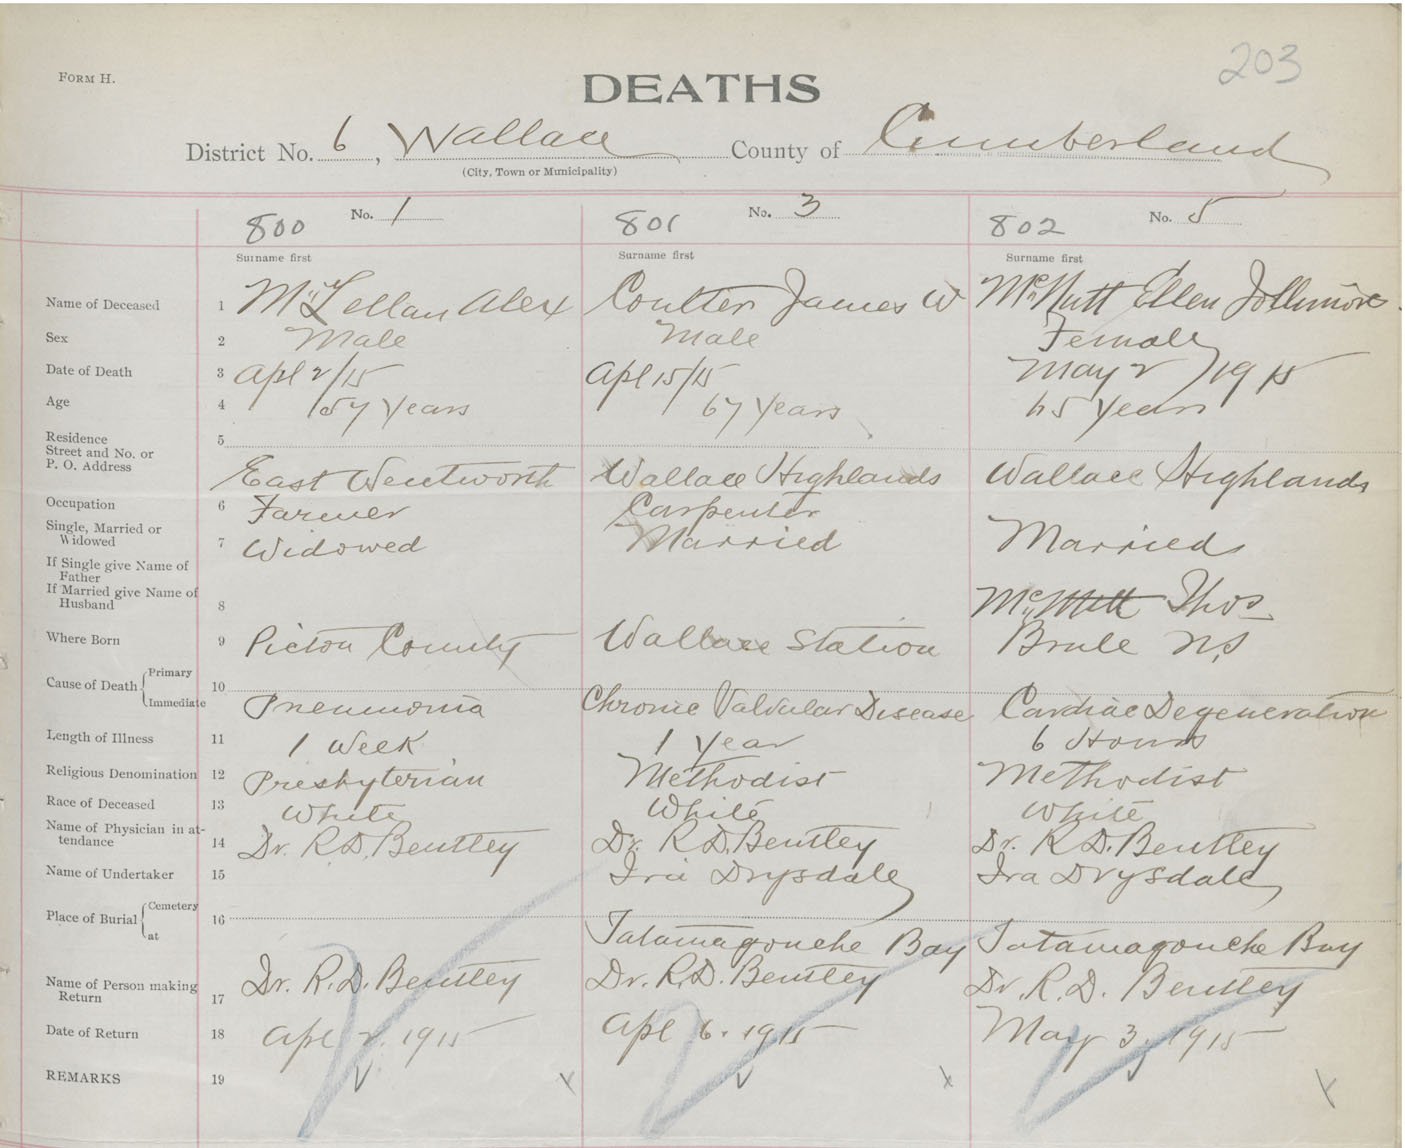 203
FORM H.
DEATHS
District No. 6, Wallace County of Cumberland
(City, Town or Municipality)
800 No. 1 801 No. 3 802 No. 5
Surname first Surname first Surname first
Name of Deceased 1 McLellan Alex Coulter James W McNutt Ellen Jollimore
Sex 2 Male Male Female
Date of Death 3 Apl 2/15 Apl 15/15 May 2/1915
Age 4 57 Years 67 Years 65 Years
Residence 5
Street and No. or
P. O. Address East Wentworth Wallace Highlands Wallace Highlands
Occupation 6 Farmer Carpenter
Single, Married or
Widowed 7 Widowed Married Married
If Single give Name of
Father
If Married give Name of
Husband 8 Thos
Where Born 9 Pictou County Wallace Station Brule N.S
Cause of Death Primary 10
Immediate Pneumonia Chronic Valvular Disease Cardiac Degeneration
Length of Illness 11 1 Week 1 Year 6 Hours
Religious Denomination 12 Presbyterian Methodist Methodist
Race of Deceased 13 White White White
Name of Physician in at-
tendance 14 Dr. R.D. Bentley Dr. R.D. Bentley Dr. R.D. Bentley
Name of Undertaker 15 Ira Drysdale Ira Drysdale
Place of Burial Cemetery 16
at Tatamagouche Bay Tatamagouche Bay
Name of Person making
Return 17 Dr. R.D. Bentley Dr. R.D. Bentley Dr. R.D. Bentley
Date of Return 18 Apl 2. 1915 Apl 6. 1915 May 3, 1915
REMARKS 19